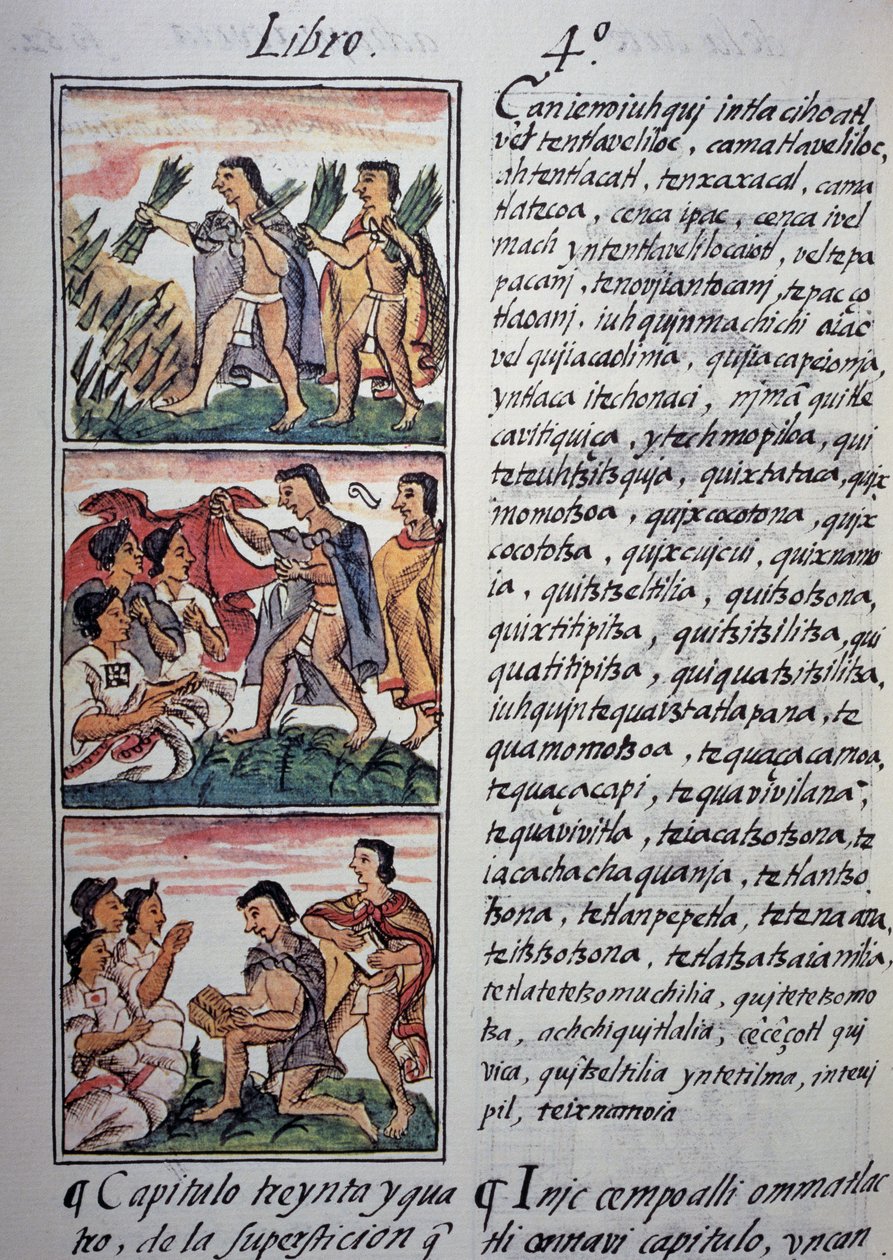 Libro.
4.º
Caniemoiuhquj intlacihoatl
vel tentlaveliloc, camatlaveliloc,
ahtentlacatl, tenxaxacal, cama
tlatecoa, cenca ipac, cenca ivel
mach yntentlavelilocaiotl, veltepa
pacanj, tenovijantocanj, tepacço
tlaoanj, iuhqujnmachichi aiac
vel qujiacaolima, qujiacapeionja,
yntlaca itechonaci, njmã quitle
cavitiquiça, ytechmopiloa, qui
teteuhtzitzquja, quixtataca, qujx
momotzoa, qujxcocotona, qujx
cocototza, qujxcujcui, quixnamo
ia, quitzitzeltilia, quitzotzona,
quixtitipitza, quitzitzilitza, qui
quatitipitza, quiquatzitzilitza,
iuhqujntequaiztatlapana, te
quamomotzoa, tequaçaçamoa,
tequaçaçapi, tequavivilana,
tequavivitla, teiacatzotzona, te
iacachachaquanja, tetlantzo
tzona, tetlanpepetla, tetenaana,
teitztzotzona, tetlatzatzaiamilia,
tetlatetetzomuchilia, qujtetetzomo
tza, achchiqujtlalia, cêcêçotl qui
vica, qujtzeltilia yntetilma, inteuj
pil, teixnamoia
¶ Capitulo treynta y qua
tro, de la supersticion q̃
¶ Injc cempoalli ommatlac
tli onnavi capitulo, yncan